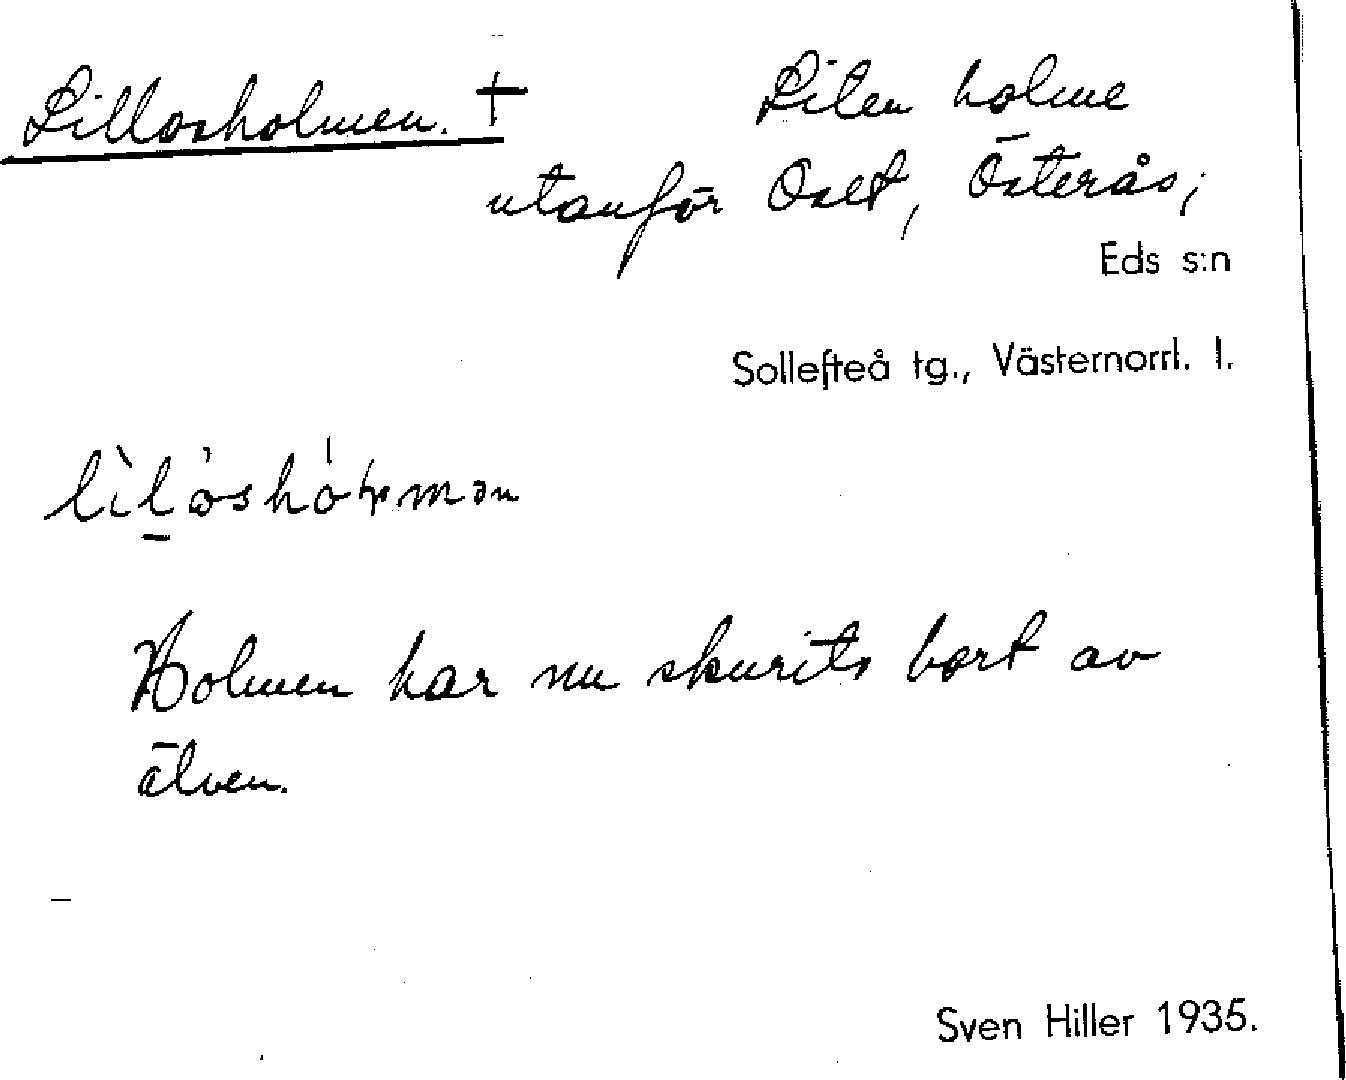 Lillosholmen. †
Liten holme
utanför Oset, Österås;
Eds s:n
Sollefteå tg., Västernorrl. l.
Holmen har nu skurits bort av
älven.
Sven Hiller 1935.